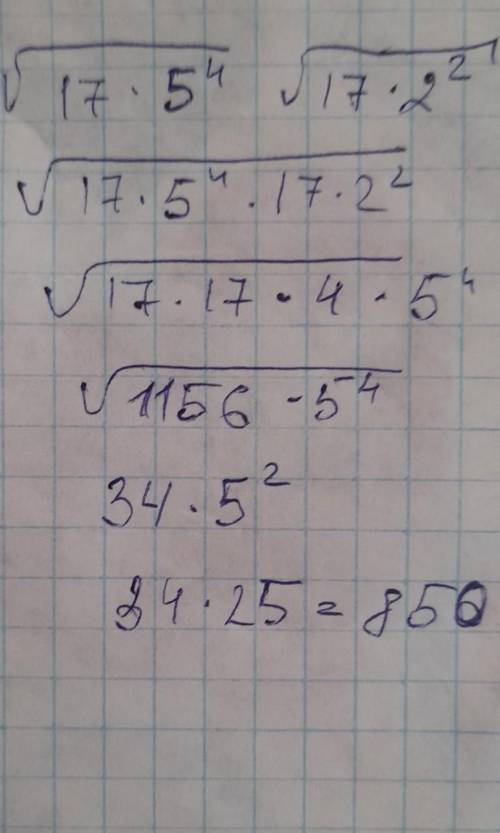 √17 · 5⁴ √17 · 2²
√17 · 5⁴ · 17 · 2²
√17 · 17 · 4 · 5⁴
√1156 · 5⁴
34 · 5²
34 · 25 = 850